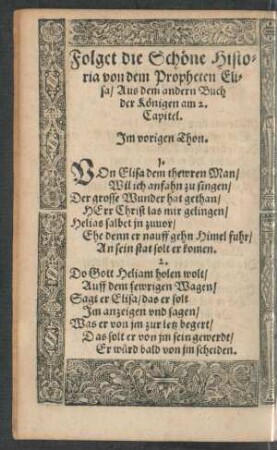 Folget die Schöne Histo-
ria von dem Propheten Eli-
sa/ Aus dem andern Buch
der Königen am 2.
Capitel.
Im vorigen Thon.
1.
VOn Elisa dem thewren Man/
Wil ich anfahn zu singen/
Der grosse Wunder hat gethan/
HErr Christ las mir gelingen/
Helias salbet jn zuuor/
Ehe denn er nauff gehn Himel fuhr/
An sein stat solt er komen.
2.
Do Gott Heliam holen wolt/
Auff dem fewrigen Wagen/
Sagt er Elisa/ das er solt
Im anzeigen vnd sagen/
Was er von jm zur letz begert/
Das solt er von jm sein gewerdt/
Er würd bald von jm scheiden.